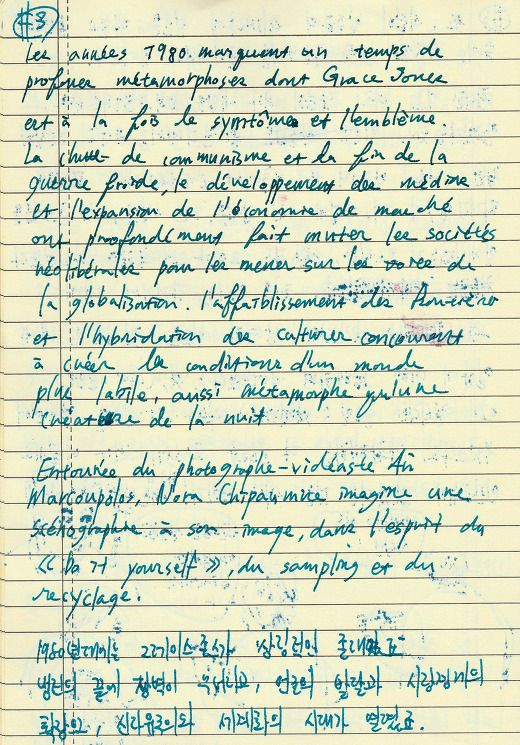 #3
Les années 1980 marquent un temps de
profones métamorphoses dont Grace Jones
est à la fois le symptôme et l'emblème.
La chute de communisme et la fin de la
guerre froide, le développement des médias
et l'expansion de l'économie de marché
ont proofondément fait muter les sociétés
néolibérales pour les mener sur les voies de
la globalisation. l'affaiblissement des frontières
et l'hybridation des cultures concourent
à créer les conditions d'un monde
plus labile, aussi métamorphe qu'une
créature de la nuit
Entourée du photographe-vidéaste Ari
Marcoupolos, Nora Chipaumire imagine une
scénographie à son image, dans l'esprit du
« Do it yourself », du sampling et du
recyclage.
1980년대에는 그레이스존스가 상징적인
냉전의 끝에 장벽이 무너지고, 언론의 발달과 시장경제의
확장으로, 신자유주의와 세계화의 시대가 열렸죠.